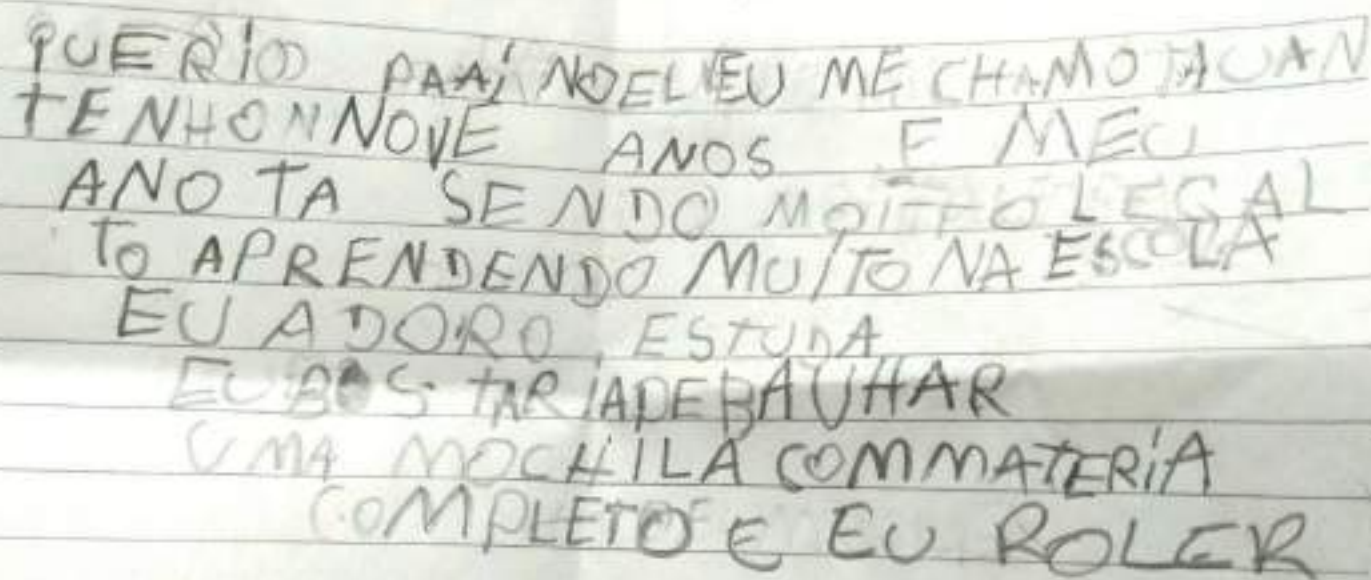 QUERIO PAAÍ NOEL EU ME CHAMO TAUAN
TENHO NNOVE ANOS E MEU
ANO TA SENDO MOITTO LEGAL
TO APRENDENDO MUITO NA ESCOLA
EU ADORO ESTUDA
EU BOSTARIA DE BAUHAR
UMA MOCHILA COM MATERIA
COMPLETO E EU ROLER